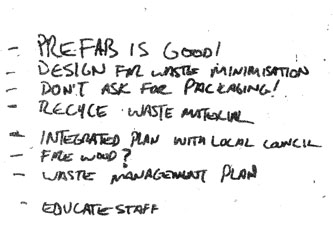 - PREFAB IS GOOD!
- DESIGN FOR WASTE MINIMISATION
- DON'T ASK FOR PACKAGING!
- RECYCE WASTE MATERIAL
- INTEGRATED PLAN WITH LOCAL COUNCIL
- FIRE WOOD?
- WASTE MANAGEMENT PLAN
- EDUCATE STAFF